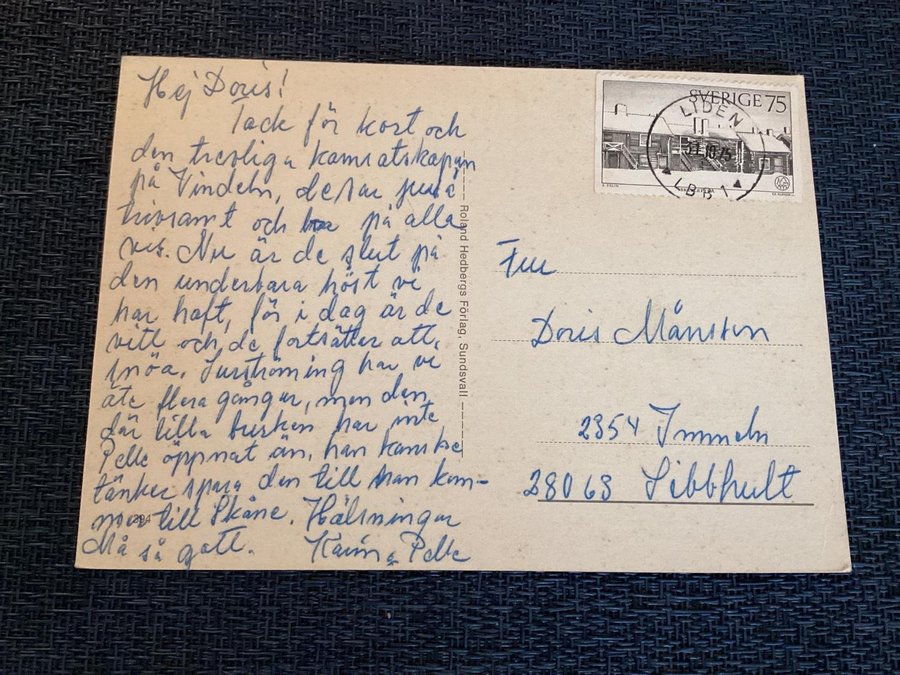 Hej Doris!
Tack för kort och
den trevliga kamratskapen
på Vindeln, de var
trivsamt och bra på alla
vis. Nu är de slut på
den underbara höst vi
har haft, för i dag är de
vitt och de fortsätter att
snöa. Surströming har vi
äte flera gånger, men den
där lilla burken har inte
Pelle öppnat än, han kanske
tänker spara den till han kom-
mer till Skåne. Hälsningar
Må så gott. Karin o Pelle
Roland Hedbergs Förlag, Sundsvall
SVERIGE 75
LIDEN
31.10.75
LBB 1
Fru
Doris Månsson
2354 Immeln
28063 Sibbhult